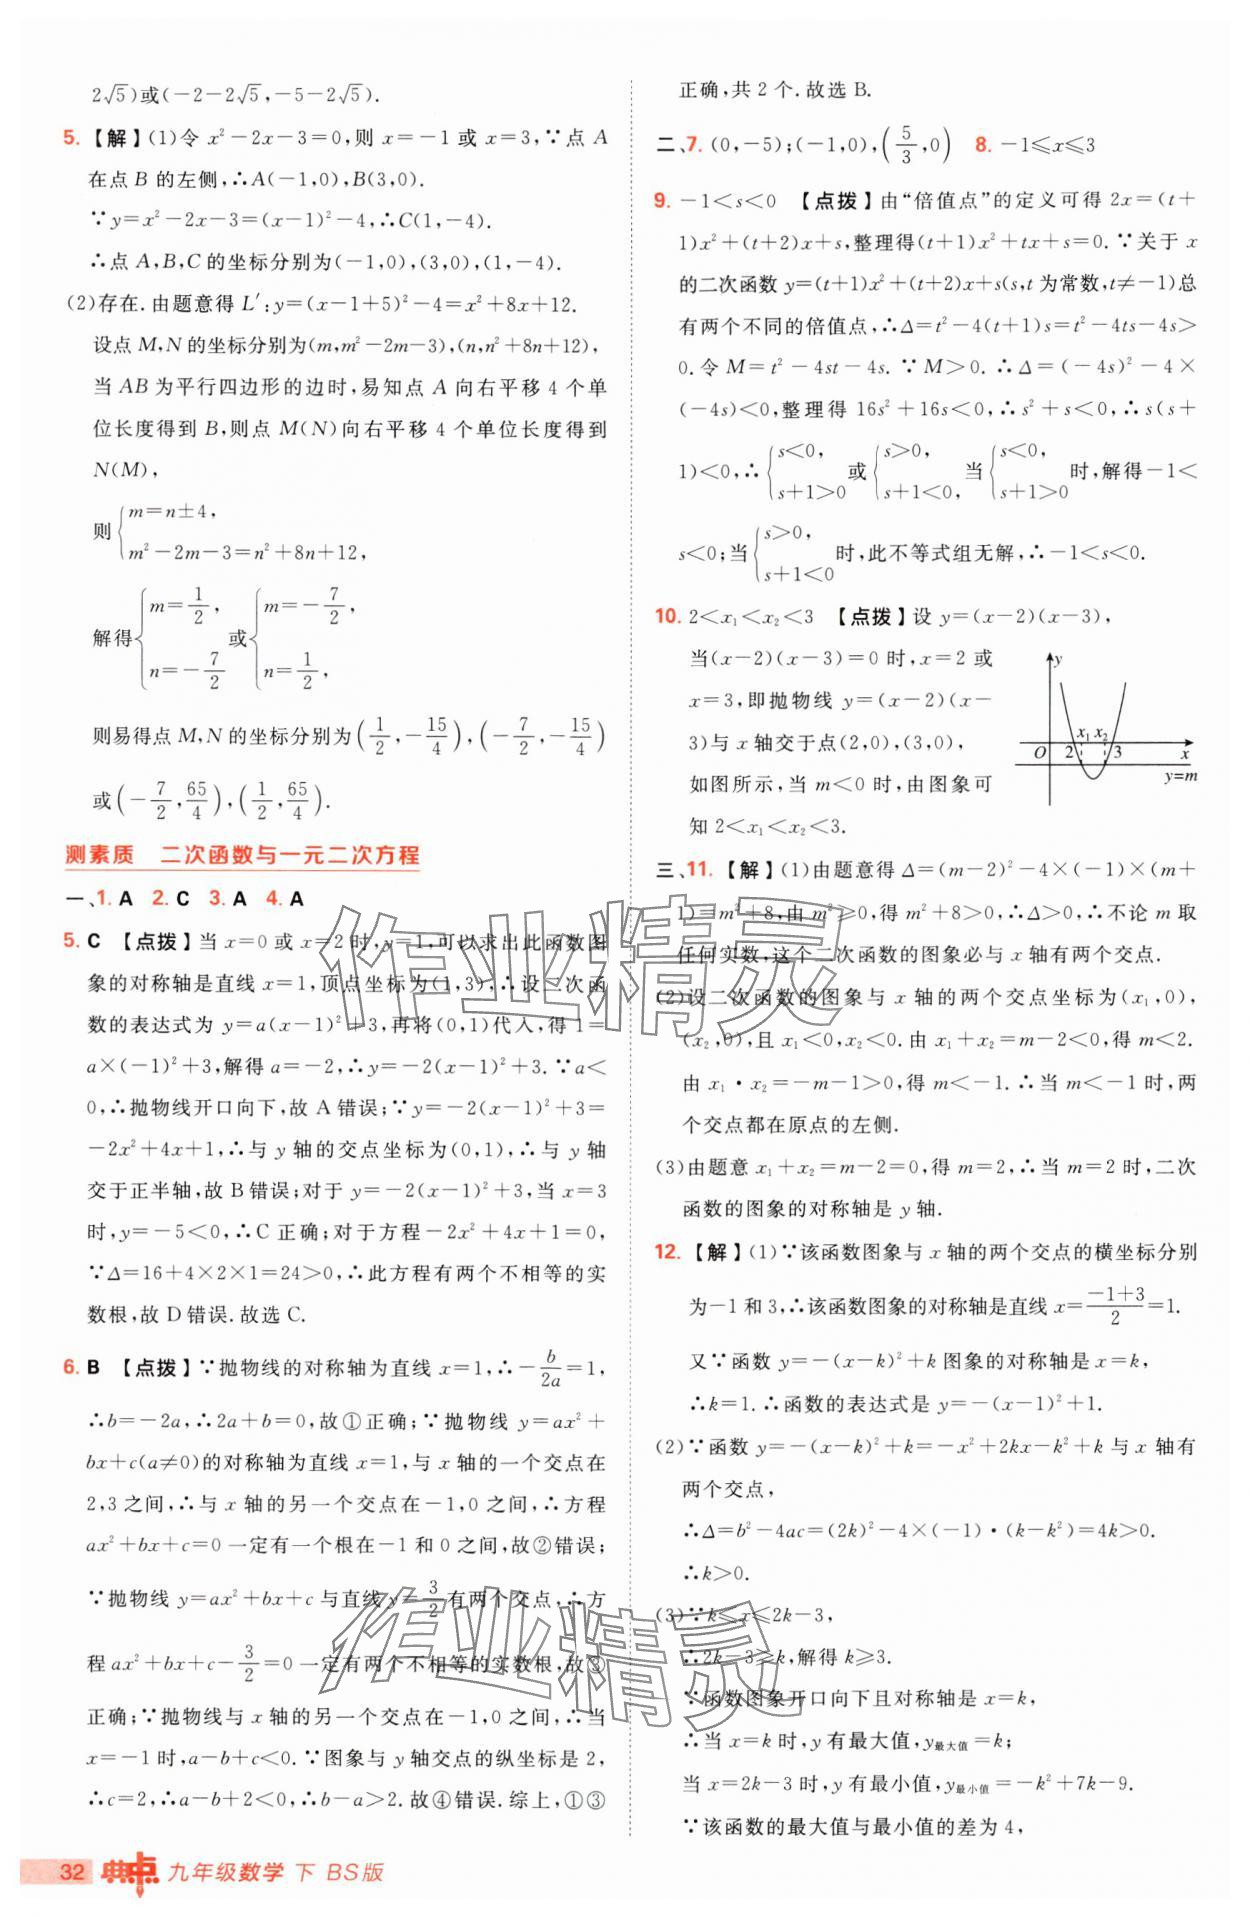 2√5)或(-2-2√5,-5-2√5).
5.【解】(1)令 x²-2x-3=0,则 x=-1 或 x=3,∵点 A
在点 B 的左侧,∴A(-1,0),B(3,0).
∵y=x²-2x-3=(x-1)²-4,∴C(1,-4).
∴点 A,B,C 的坐标分别为(-1,0),(3,0),(1,-4).
(2)存在.由题意得 L′:y=(x-1+5)²-4=x²+8x+12.
设点 M,N 的坐标分别为(m,m²-2m-3),(n,n²+8n+12),
当 AB 为平行四边形的边时,易知点 A 向右平移 4 个单
位长度得到 B,则点 M(N)向右平移 4 个单位长度得到
N(M),
则{m=n±4, m²-2m-3=n²+8n+12,
解得{m=1/2, n=-7/2 或{m=-7/2, n=1/2,
则易得点 M,N 的坐标分别为(1/2,-15/4),(-7/2,-15/4)
或(-7/2,65/4),(1/2,65/4).
测素质 二次函数与一元二次方程
一、1. A 2. C 3. A 4. A
5. C 【点拨】当 x=0 或 x=2 时,y=1,可以求出此函数图
象的对称轴是直线 x=1,顶点坐标为(1,3),∴设二次函
数的表达式为 y=a(x-1)²+3,再将(0,1)代入,得 1=
a×(-1)²+3,解得 a=-2,∴y=-2(x-1)²+3.∵a<
0,∴抛物线开口向下,故 A 错误;∵y=-2(x-1)²+3=
-2x²+4x+1,∴与 y 轴的交点坐标为(0,1),∴与 y 轴
交于正半轴,故 B 错误;对于 y=-2(x-1)²+3,当 x=3
时,y=-5<0,∴C 正确;对于方程-2x²+4x+1=0,
∵Δ=16+4×2×1=24>0,∴此方程有两个不相等的实
数根,故 D 错误.故选 C.
6. B 【点拨】∵抛物线的对称轴为直线 x=1,∴-b/2a=1,
∴b=-2a,∴2a+b=0,故①正确;∵抛物线 y=ax²+
bx+c(a≠0)的对称轴为直线 x=1,与 x 轴的一个交点在
2,3 之间,∴与 x 轴的另一个交点在-1,0 之间,∴方程
ax²+bx+c=0 一定有一个根在-1 和 0 之间,故②错误;
∵抛物线 y=ax²+bx+c 与直线 y=3/2 有两个交点,∴方
程 ax²+bx+c-3/2=0 一定有两个不相等的实数根,故③
正确;∵抛物线与 x 轴的另一个交点在-1,0 之间,∴当
x=-1 时,a-b+c<0.∵图象与 y 轴交点的纵坐标是 2,
∴c=2,∴a-b+2<0,∴b-a>2.故④错误.综上,①③
正确,共 2 个.故选 B.
二、7. (0,-5);(-1,0),(5/3,0) 8. -1≤x≤3
9. -1<s<0 【点拨】由“倍值点”的定义可得 2x=(t+
1)x²+(t+2)x+s,整理得(t+1)x²+tx+s=0.∵关于 x
的二次函数 y=(t+1)x²+(t+2)x+s(s,t 为常数,t≠-1)总
有两个不同的倍值点,∴Δ=t²-4(t+1)s=t²-4ts-4s>
0.令 M=t²-4st-4s.∵M>0.∴Δ=(-4s)²-4×
(-4s)<0,整理得 16s²+16s<0,∴s²+s<0,∴s(s+
1)<0,∴{s<0, s+1>0 或{s>0, s+1<0, 当{s<0, s+1>0 时,解得-1<
s<0;当{s>0, s+1<0 时,此不等式组无解,∴-1<s<0.
10. 2<x₁<x₂<3 【点拨】设 y=(x-2)(x-3),
当(x-2)(x-3)=0 时,x=2 或
x=3,即抛物线 y=(x-2)(x-
3)与 x 轴交于点(2,0),(3,0),
如图所示,当 m<0 时,由图象可
知 2<x₁<x₂<3.
y
x₁ x₂
O 2 3 x
y=m
三、11.【解】(1)由题意得 Δ=(m-2)²-4×(-1)×(m+
1)=m²+8,由 m²≥0,得 m²+8>0,∴Δ>0,∴不论 m 取
任何实数,这个二次函数的图象必与 x 轴有两个交点.
(2)设二次函数的图象与 x 轴的两个交点坐标为(x₁,0),
(x₂,0),且 x₁<0,x₂<0.由 x₁+x₂=m-2<0,得 m<2.
由 x₁·x₂=-m-1>0,得 m<-1.∴当 m<-1 时,两
个交点都在原点的左侧.
(3)由题意 x₁+x₂=m-2=0,得 m=2,∴当 m=2 时,二次
函数的图象的对称轴是 y 轴.
12.【解】(1)∵该函数图象与 x 轴的两个交点的横坐标分别
为-1 和 3,∴该函数图象的对称轴是直线 x=(-1+3)/2=1.
又∵函数 y=-(x-k)²+k 图象的对称轴是 x=k,
∴k=1.∴函数的表达式是 y=-(x-1)²+1.
(2)∵函数 y=-(x-k)²+k=-x²+2kx-k²+k 与 x 轴有
两个交点,
∴Δ=b²-4ac=(2k)²-4×(-1)·(k-k²)=4k>0.
∴k>0.
(3)∵k≤x≤2k-3,
∴2k-3≥k,解得 k≥3.
∵函数图象开口向下且对称轴是 x=k,
∴当 x=k 时,y 有最大值,y最大值=k;
当 x=2k-3 时,y 有最小值,y最小值=-k²+7k-9.
∵该函数的最大值与最小值的差为 4,
作业精灵
作业精灵
32 典中点 九年级数学 下 BS版